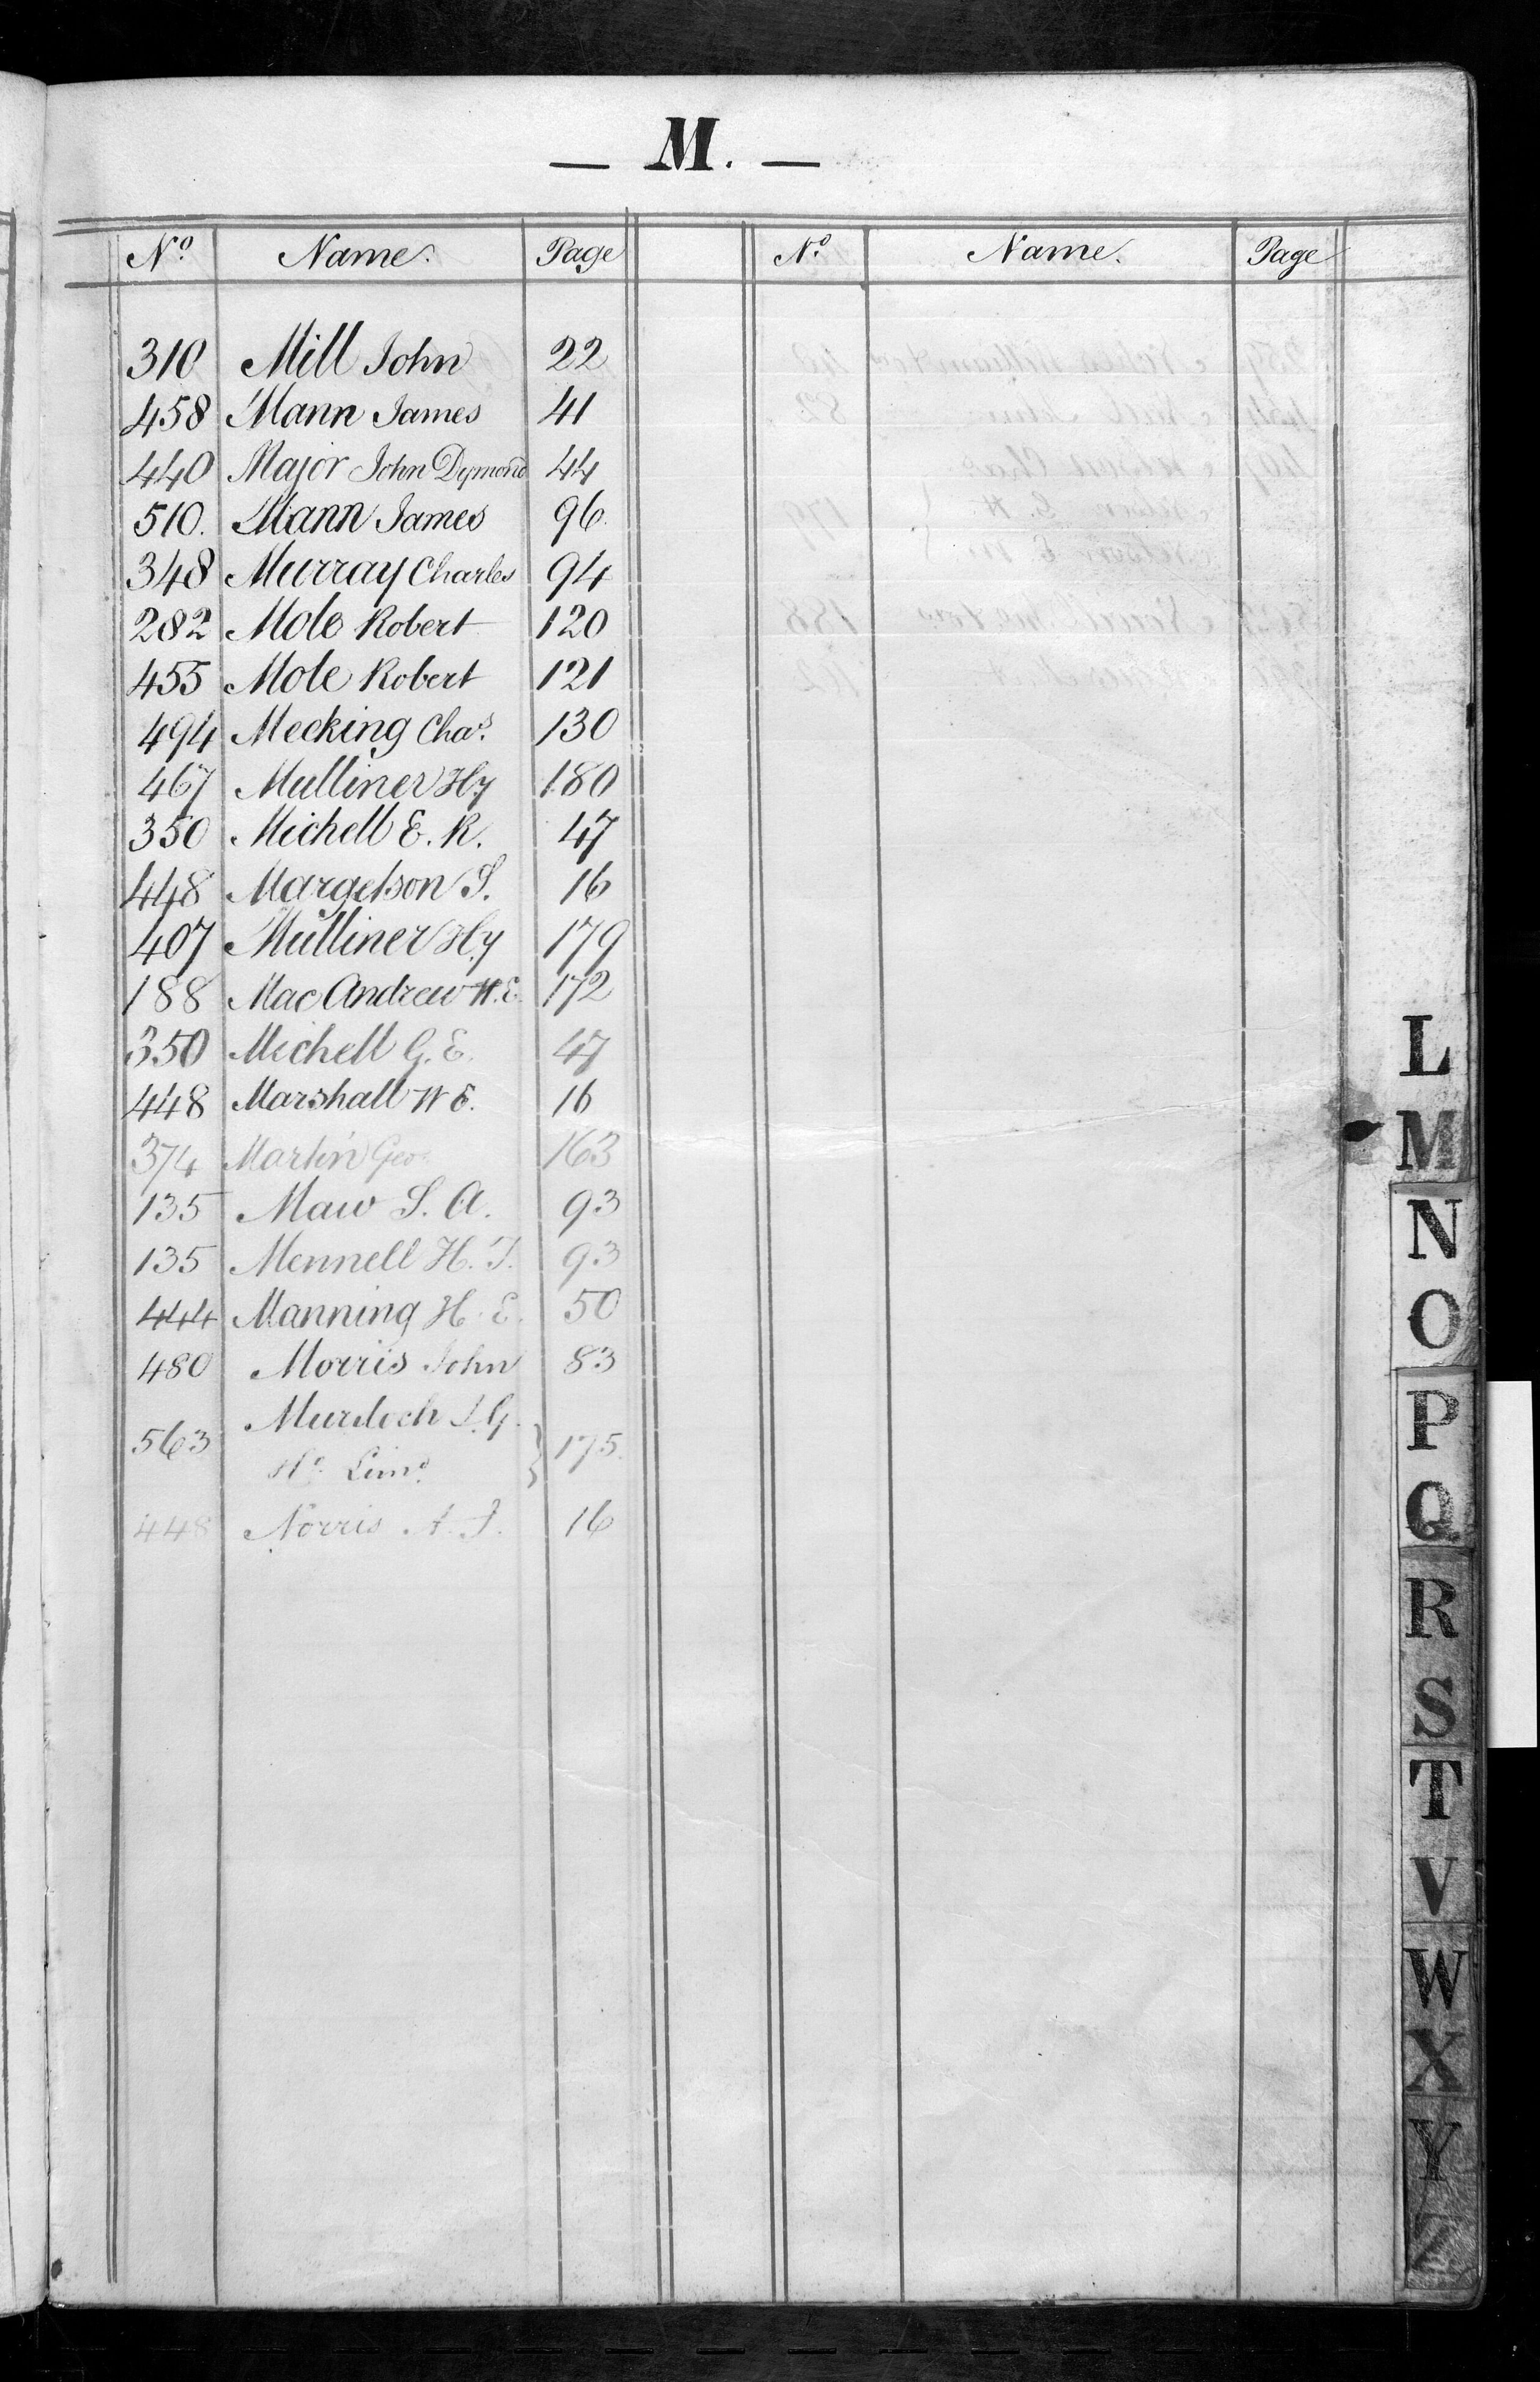 — M. —
No. Name. Page No. Name. Page
310 Mill John 22
458 Mann James 41
440 Major John Dymond 44
510. Mann James 96.
348 Murray Charles 94
282 Mole Robert 120
455 Mole Robert 121
494 Mecking Chas. 130
467 Mulliner Hy 180
350 Michell E. R. 47
448 Margetson S. 16
407 Mulliner Hy 179
188 Mac Andrew W. E. 172
350 Michell G. E. 47
448 Marshall W E. 16
374 Martin Geo. 163
135 Maw S. A. 93
135 Mennell H. T. 93
444 Manning H. E. 50
480 Morris John 83
563 Murdoch J. G. 175.
Limd.
448 Norris A. J. 16
L
M
N
O
P
Q
R
S
T
V
W
X
Y
Z